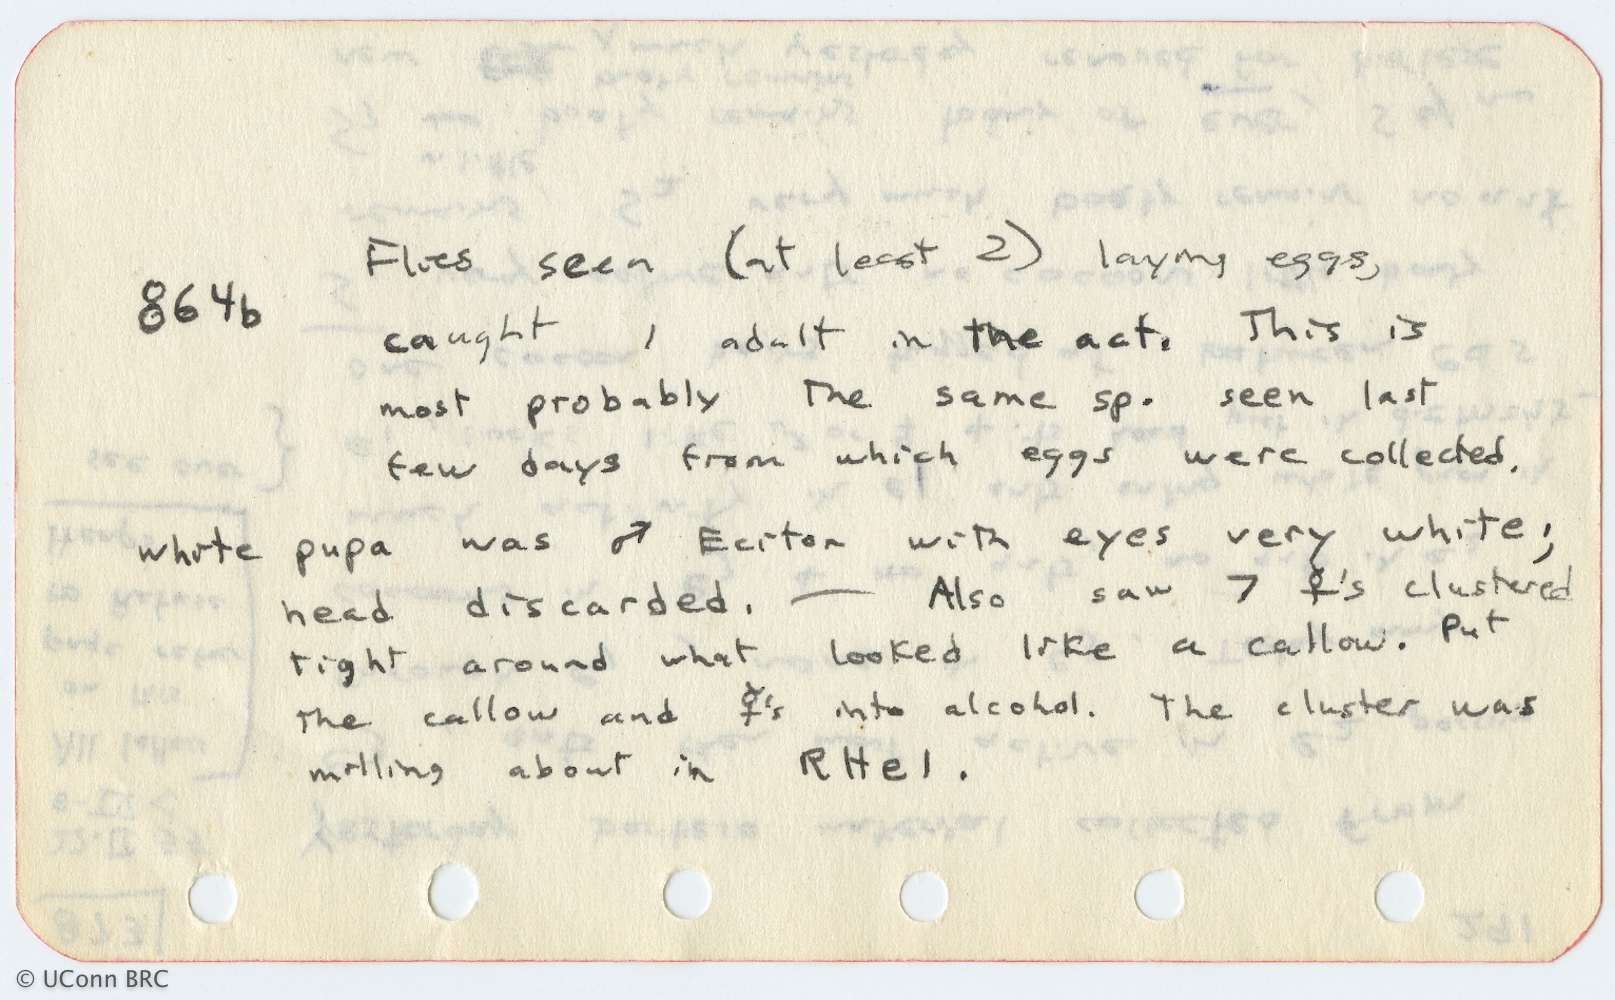 Flies seen (at least 2) laying eggs,
864b
caught 1 adult in the act. This is
most probably the same sp. seen last
few days from which eggs were collected.
white pupa was ♂ Eciton with eyes very white;
head discarded. — Also saw 7 ☿'s clustered
tight around what looked like a callow. Put
the callow and ☿'s into alcohol. The cluster was
milling about in RHe1.
© UConn BRC